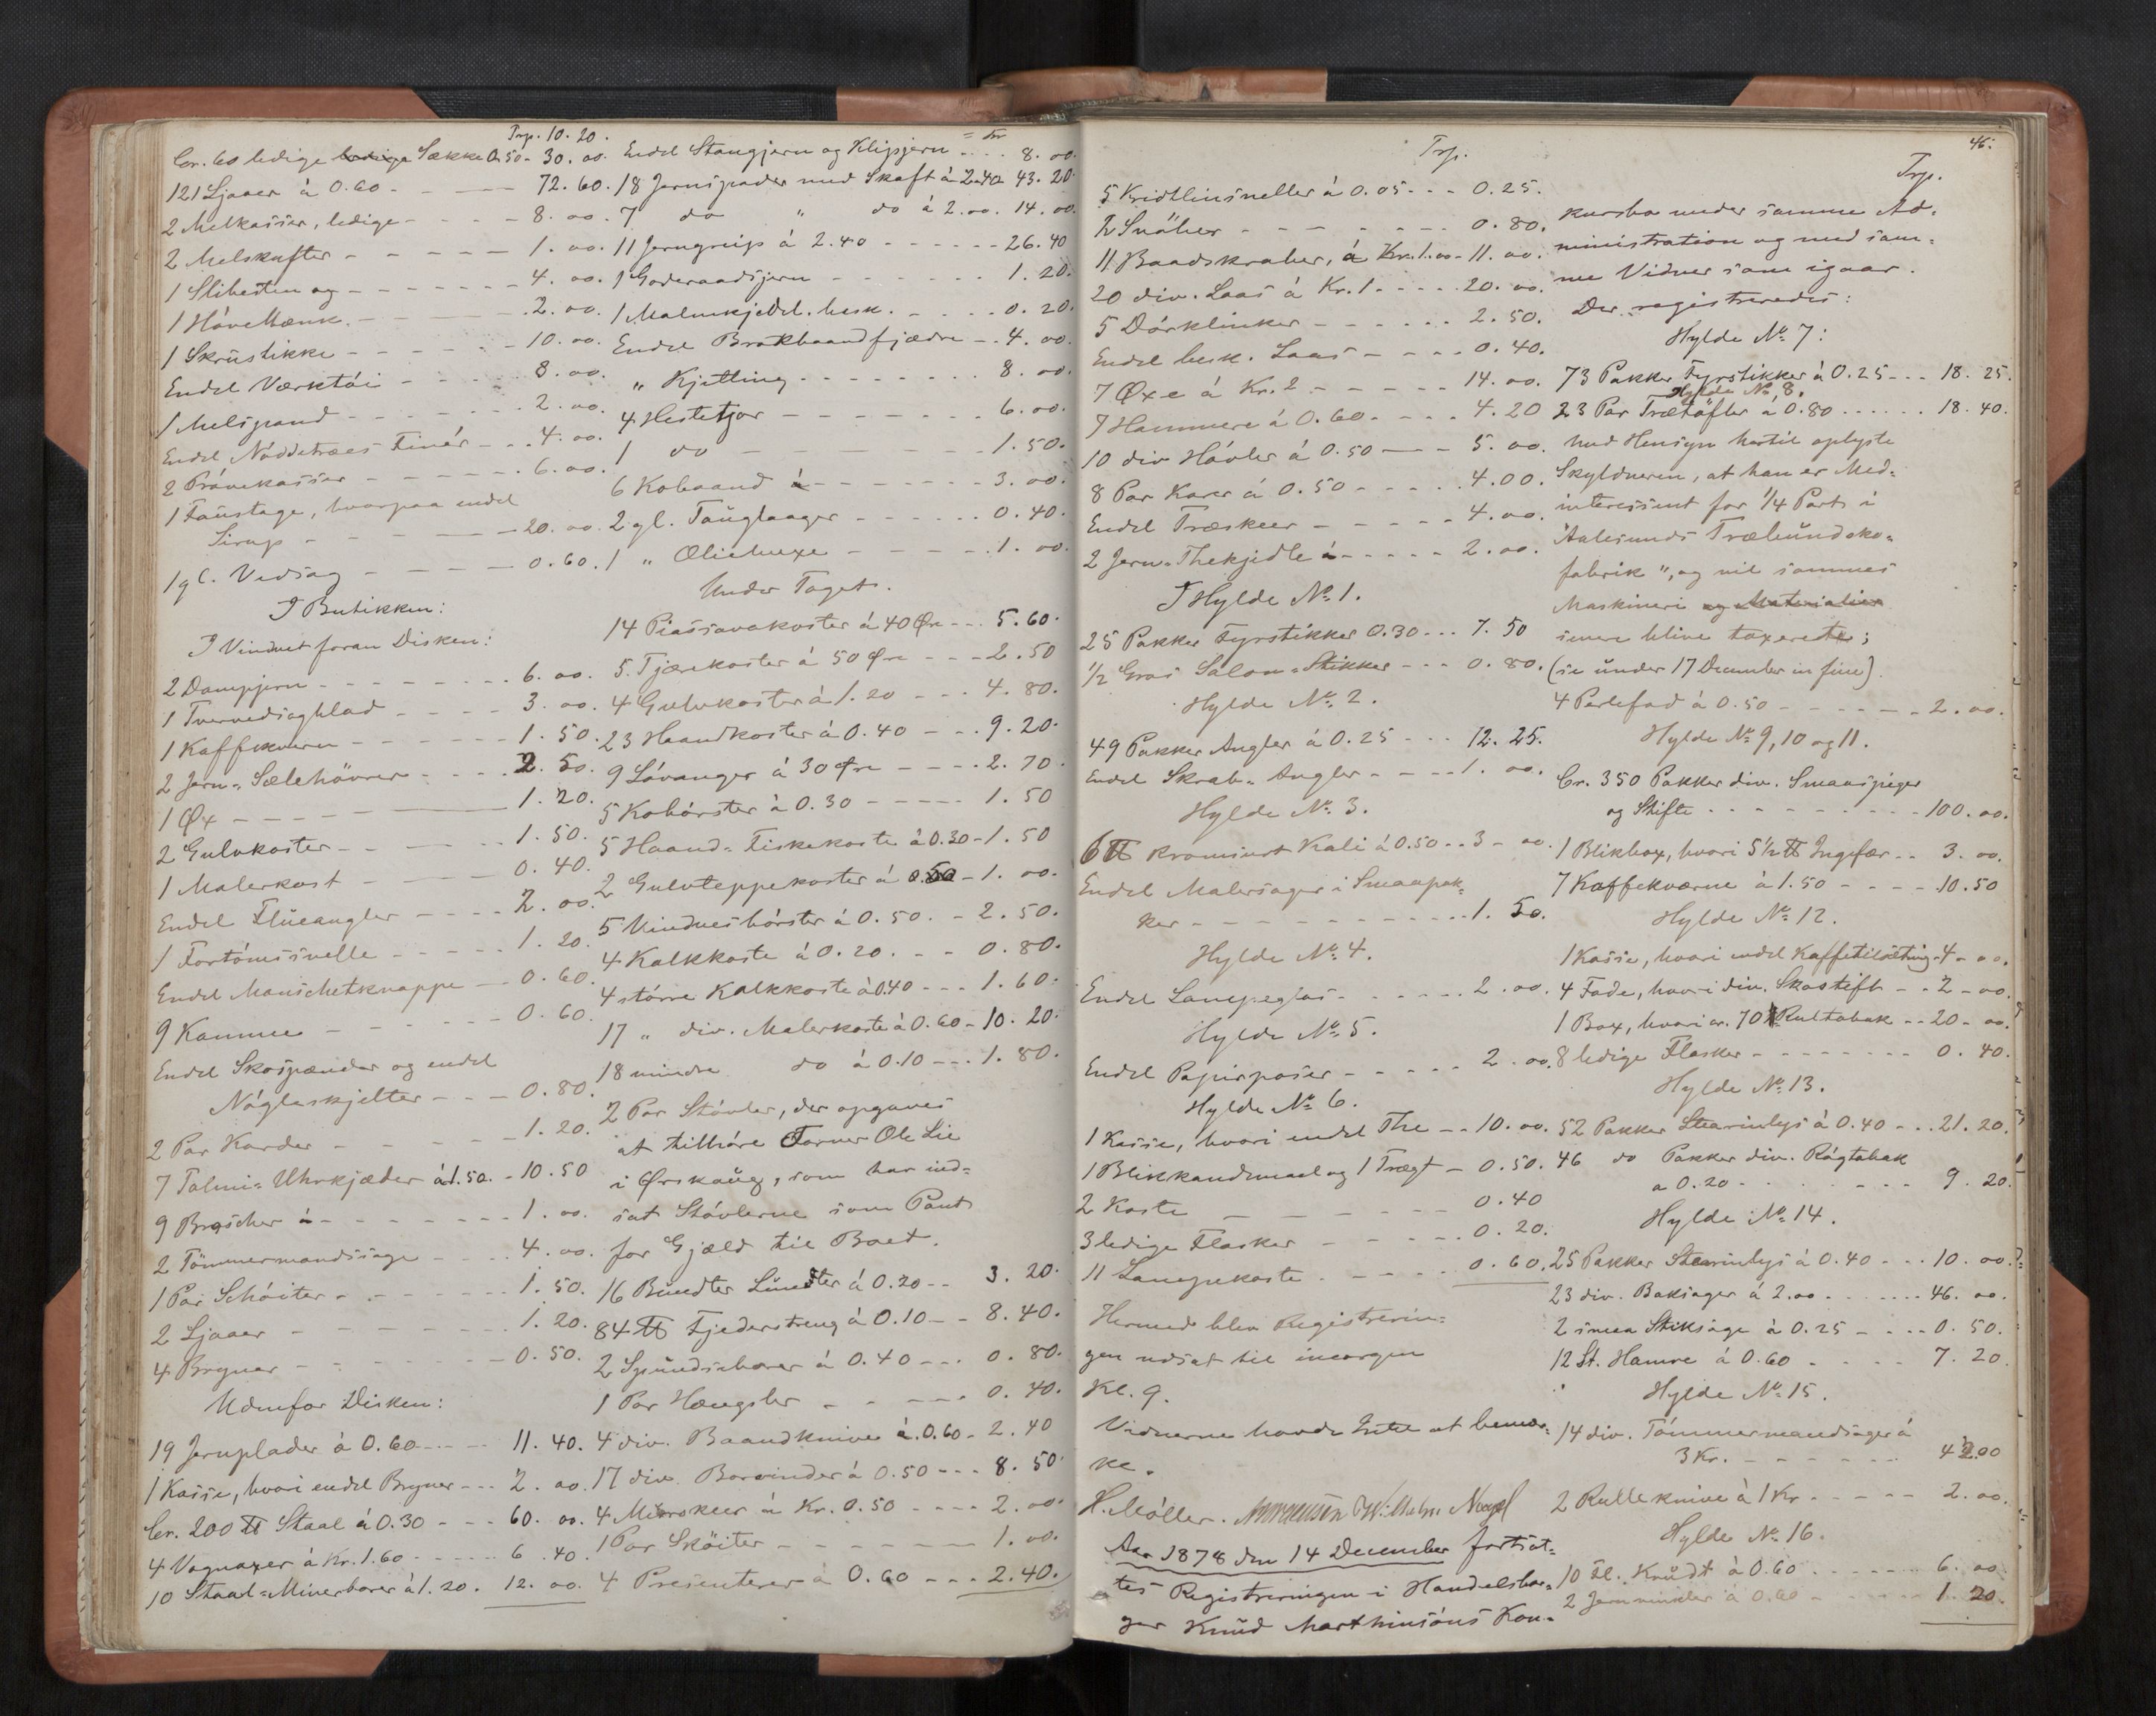 Trp. 10. 20.
Cr. 60 ledige Sække 0.50 - 30. 00.
121 Ljaaer à 0.60 - - - 72. 60.
2 Melkasser, ledige - - - 8. 00.
2 Melskufter - - - 1. 00.
1 Slibesten og - - - 4. 00.
1 Hövelbænk - - - 2. 00.
1 Skrustikke - - - 10. 00.
Endel Værktöi - - - 8. 00.
1 Melspand - - - 2. 00.
Endel Nöddetræes Finér - - - 4. 00.
2 Prövekasser - - - 6. 00.
1 Faustage, hvorpaa endel
Sirup - - - 20. 00.
1 gl. Vedsag - - - 0.60.
I Butikken:
I Vinduet foran Disken:
2 Dampjern - - - 6. 00.
1 Tvervedsagblad - - - 3. 00.
1 Kaffekværn - - - 1. 50.
2 Jern-Sælehövrer - - - 2. 50.
1 Öx - - - 1. 20.
2 Gulvkoster - - - 1. 50.
1 Malerkost - - - 0. 40.
Endel Flueangler - - - 2. 00.
1 Fortömssnelle - - - 1. 20.
Endel Manschetknappe - - - 0. 60.
9 Kamme - - - 0. 60.
Endel Skospænder og endel
Nögleskjilter - - - 0. 80.
2 Par Karder - - - 1. 20.
7 Talmi-Uhrkjæder à 1.50. - 10. 50
9 Broscher à - - - 1. 00.
2 Tömmermandssage - - - 4. 00.
1 Par Schöiter - - - 1. 50.
2 Ljaaer - - - 1. 20.
4 Bryner - - - 0. 50.
Udenfor Disken:
19 Jernplader à 0.60 - - - 11. 40.
1 Kasse, hvori endel Bryner - - - 2. 00.
Cr. 200 ℔ Staal à 0.30 - - - 60. 00.
4 Vognaxer à Kr. 1.60 - - - 6. 40.
10 Staal-Minerborer à 1. 20. 12. 00.
= Trp
Endel Stangjern og Klipjern - - - 8. 00.
18 Jernspader med Skaft à 2.40 43. 20.
7 do " do à 2.00. 14. 00.
11 Jerngreip à 2.40 - - - 26. 40
1 Goderaadsjern - - - 1. 20.
1 Malmkjedel, besk. - - - 0. 20.
Endel Brokbaandfjædre - - 4. 00.
" Kjetting - - - 8. 00.
4 Hestetjor - - - 6. 00.
1 do - - - 1. 50.
6 Kobaand à - - - 3. 00.
2 gl. Tauglaager - - - 0. 40.
1 " Oliebuxe - - - 1. 00.
Under Taget.
14 Piassavakoster à 40 Øre - - - 5. 60.
5 Tjærekoster à 50 Øre - - - 2. 50
4 Gulvkoster à 1. 20 - - - 4. 80.
23 Haandkoster à 0. 40 - - - 9. 20.
9 Lövanger à 30 Øre - - - 2. 70.
5 Kobörster à 0.30 - - - 1. 50
5 Haand-Fiskekoste à 0.30 - 1. 50
2 Gulvteppekoster à 0.50 - 1. 00.
5 Vinduesbörster à 0. 50. - 2. 50.
4 Kalkkoste à 0. 20. - - 0. 80.
4 större Kalkkoste à 0.40 - - - 1. 60.
17 " div. Malerkoste à 0.60 - 10. 20.
18 mindre do à 0.10 - - - 1. 80.
2 Par Stövler, der opgaves
at tilhöre Farver Ole Lie
i Ørskoug, som har ind-
sat Stövlerne som Pant
for Gjæld til Boet.
16 Bundter Lunter à 0.20 - - 3. 20.
84 ℔ Fjederstreng à 0.10 - - 8. 40.
2 Spundsborer à 0. 40 - - - 0. 80.
1 Par Hængsler - - - 0. 40.
4 div. Baandknive à 0.60 - 2. 40
17 div. Borvinder à 0.50 - - - 8. 50.
4 Murskeer à Kr. 0.50 - - - 2. 00.
1 Par Sköiter - - - 1. 00.
4 Presenterer à 0. 60 - - - 2. 40.
Trp.
5 Kridtlinsneller à 0.05 - - - 0. 25.
2 - - - 0. 80.
11 Baadskraber, à Kr. 1.00 - 11. 00.
20 div. Laas à Kr. 1 - - - 20. 00.
5 Dörklinker - - - 2. 50.
Endel besk. Laas - - - 0. 40.
7 Øxe à Kr. 2 - - - 14. 00.
7 Hammere à 0.60. - - - 4. 20
10 div Hövler à 0.50 - - - 5. 00.
8 Par Karer à 0.50 - - - 4. 00.
Endel Træskeer - - - 4. 00.
2 Jern-Thekjedle à - - - 2. 00.
I Hylde No. 1.
25 Pakker Fyrstikker 0.30 - - - 7. 50
1/2 Gros Salon-Stikker - - - 0. 80.
Hylde No. 2.
49 Pakker Angler à 0.25 - - - 12. 25.
Endel Skrab-Angler - - - 1. 00.
Hylde No. 3.
6 ℔ kromsurt Kali à 0.50 - - 3 - 00.
Endel Malersager i Smaapak-
ker - - - 1. 50.
Hylde No. 4.
Endel Lampeglas - - - 2. 00.
Hylde No. 5.
Endel Papirposer - - - 2. 00.
Hylde No. 6.
1 Kasse, hvori endel The - - 10. 00.
1 Blikkandemaal og 1 Tragt - 0. 50.
2 Koste - - - 0. 40
3 ledige Flasker - - - 0. 20.
11 Lampekoste - - - 0. 60.
Hermed blev Registrerin-
gen udsat til imorgen
Kl. 9.
Vidnerne havde Intet at bemær-
ke.
H. Möller. Wilhelm Nagel
Aar 1878 den 14 December fortsat-
tes Registreringen i Handelsbor-
ger Knud Marthinsöns Kon-
46.
Trp.
kursbo under samme Ad-
ministration og med sam-
me Vidner som igaar.
Der registreredes:
Hylde No. 7:
73 Pakker Fyrstikker à 0.25 - - - 18. 25.
Hylde No. 8.
23 Par Trætöfler à 0.80 - - - 18. 40.
Med Hensyn hertil oplyste
Skyldneren, at han er Med-
interessent for 1/4 Part i
"Aalesunds Træbundsko-
fabrik", og vil sammes
Maskineri og Materialier
senere blive taxerede;
(se under 17 December in fine).
4 Perlefad à 0.50 - - - 2. 00.
Hylde No. 9, 10 og 11.
Cr. 350 Pakker div. Smaaspiger
og Stifte - - - 100. 00.
1 Blikbox, hvori 5 1/2 ℔ Ingefær - - 3. 00.
7 Kaffekværne à 1.50 - - - 10. 50
Hylde No. 12.
1 Kasse, hvori endel Kaffetilsætning - 4 - 00.
4 Fade, hvori div. Skostift - - 2 - 00.
1 Box, hvori cr. 70 Rultabak - - 20 - 00.
8 ledige Flasker - - - 0. 40.
Hylde No. 13.
52 Pakker Stearinlys à 0.40 - - - 21. 20.
46 do Pakker div. Rögtabak
a 0.20 - - - 9. 20.
Hylde No. 14.
25 Pakker Stearinlys à 0.40 - - - 10. 00.
23 div. Baksager à 2.00 - - - 46. 00.
2 smaa Stiksage à 0.25 - - - 0. 50.
12 St. Hamre à 0.60 - - - 7. 20
Hylde No. 15.
14 div. Tömmermandsager à
3 Kr. - - - 42.00
2 Rulleknive à 1 Kr - - - 2. 00.
Hylde No. 16.
10 Fl. Krudt à 0.60 - - - 6. 00.
2 à 0.60 - - - 1. 20.